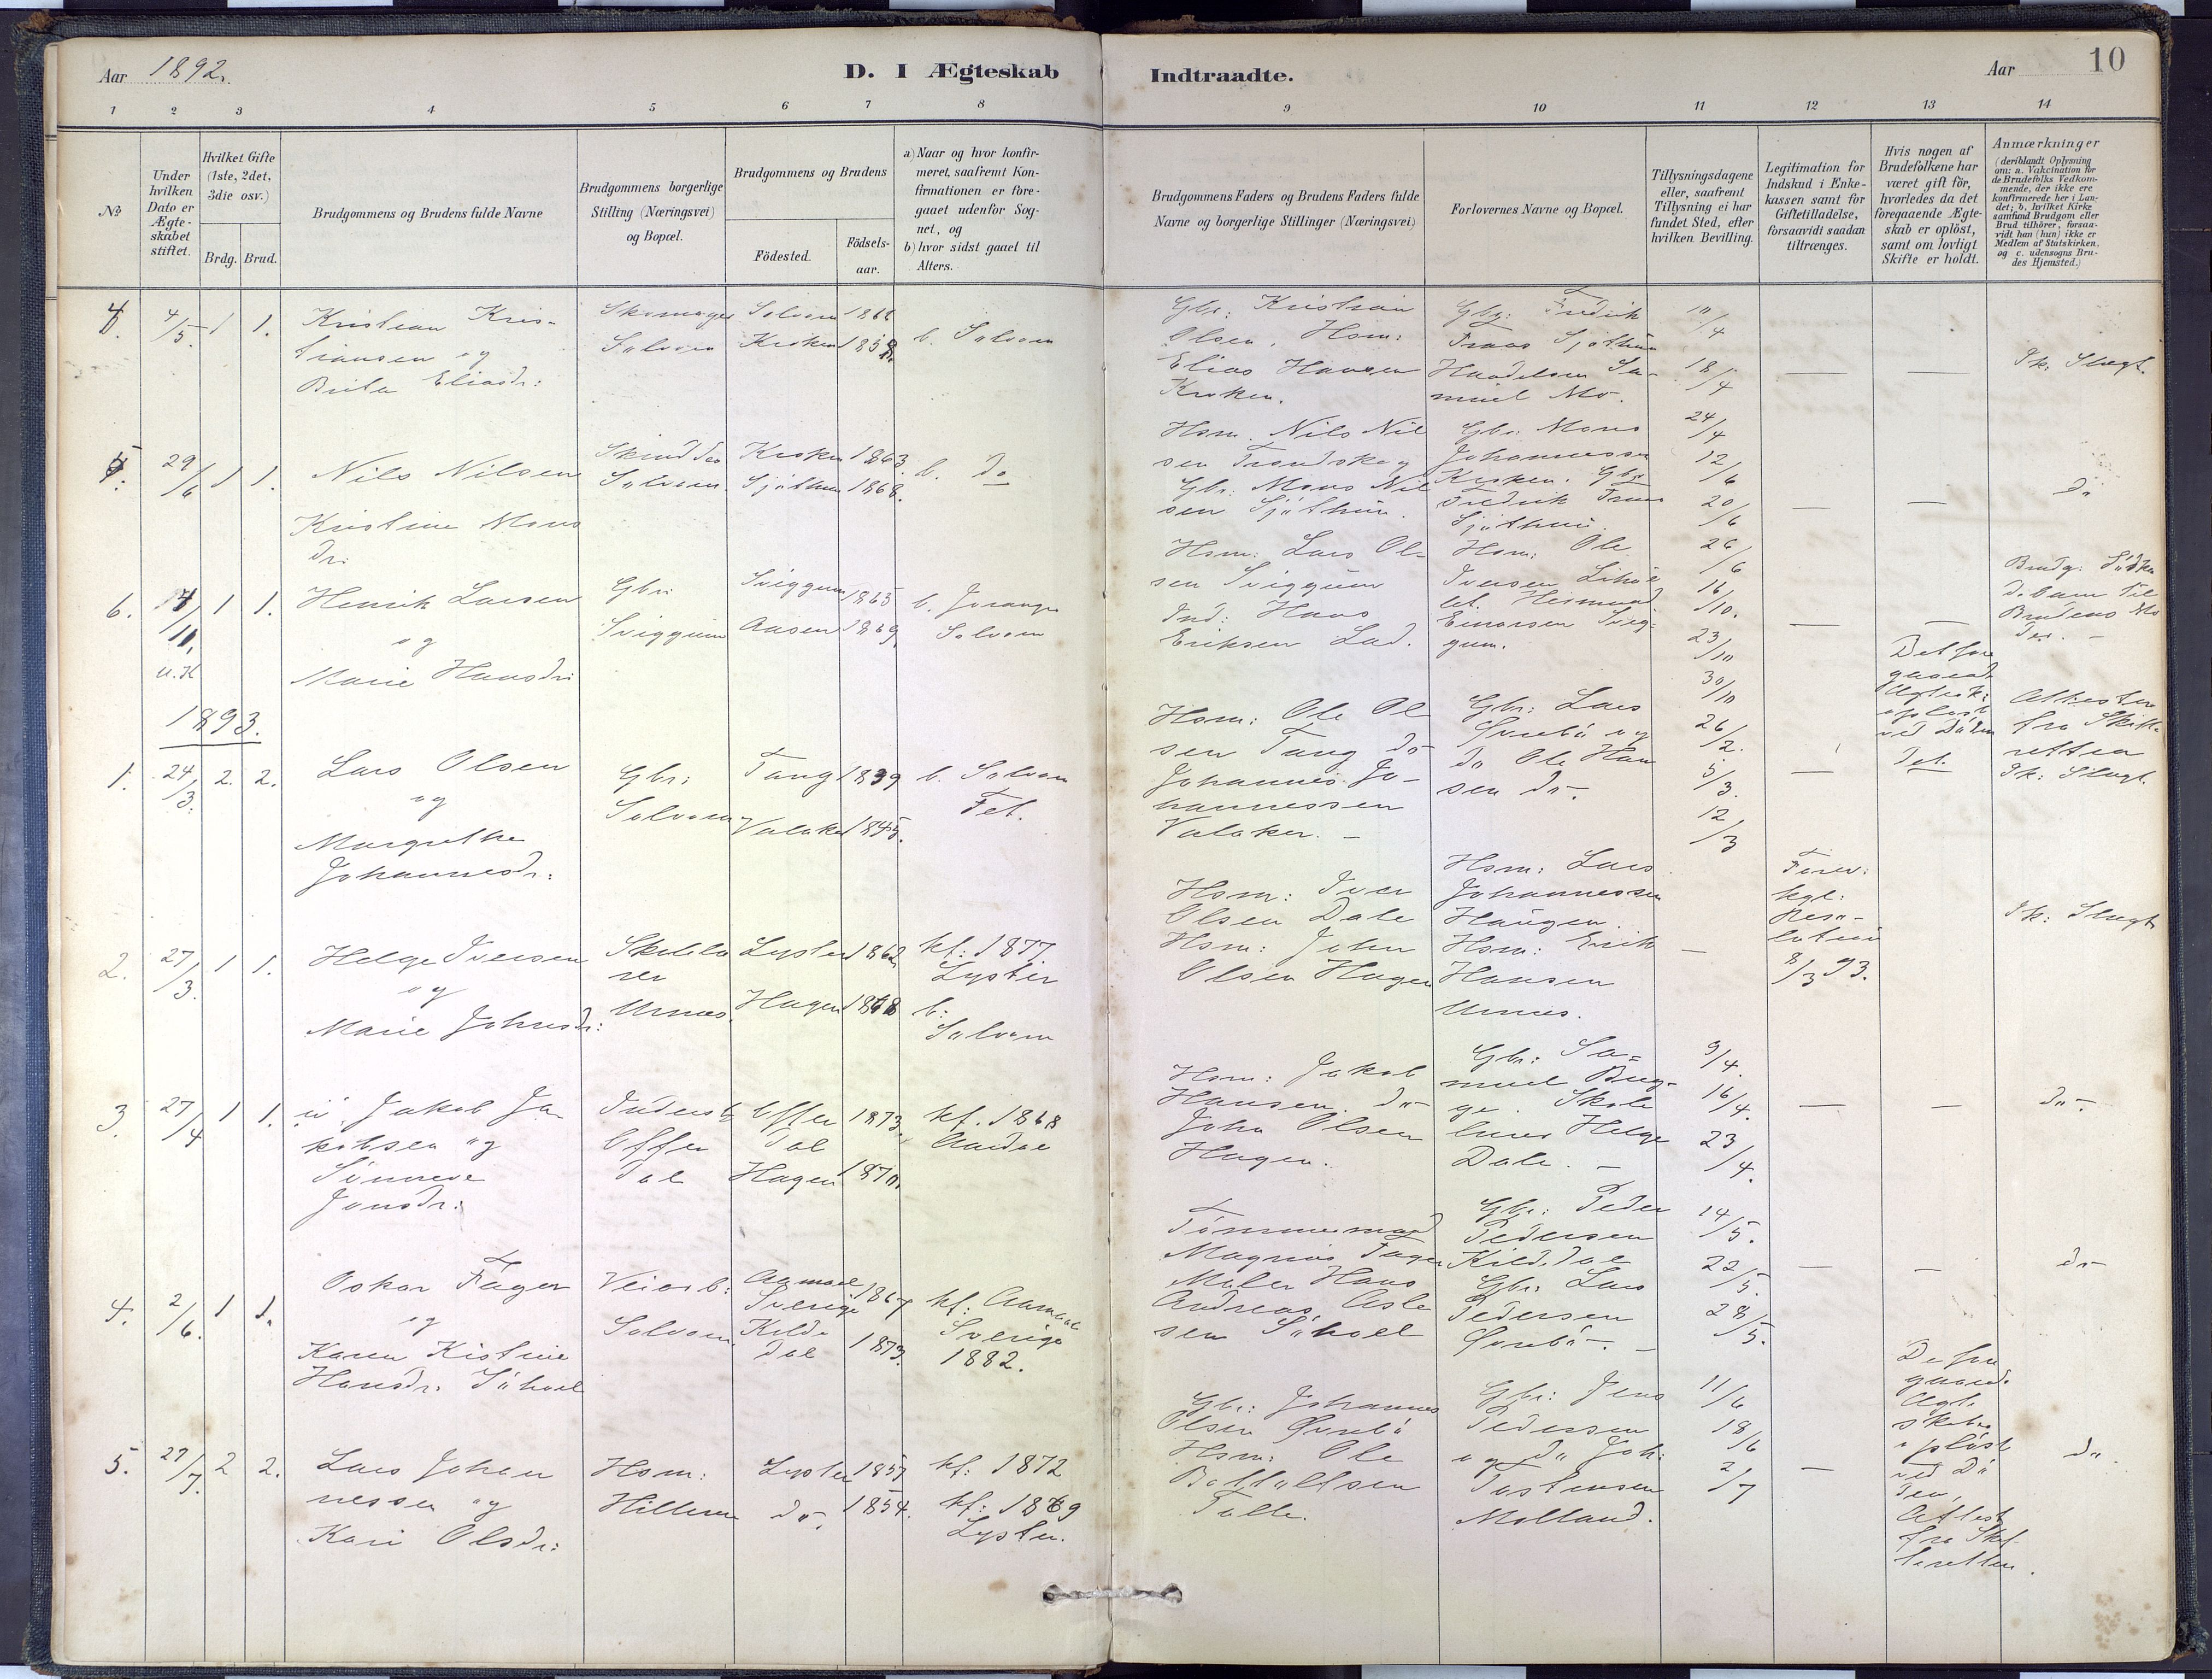 Aar 1892.
D. I Ægteskab Indtraadte.
Aar
10
1 2 3 4 5 6 7 8 9 10 11 12 13 14
No
Under hvilken Dato er Ægteskabet stiftet.
Hvilket Gifte (1ste, 2det, 3die osv.)
Brdg. Brud.
Brudgommens og Brudens fulde Navne
Brudgommens borgerlige Stilling (Næringsvei) og Bopæl.
Brudgommens og Brudens
Födested.
Födsels-aar.
a) Naar og hvor konfirmeret, saafremt Konfirmationen er foregaaet udenfor Sognet, og
b) hvor sidst gaaet til Alters.
Brudgommens Faders og Brudens Faders fulde Navne og borgerlige Stillinger (Næringsvei)
Forlovernes Navne og Bopæl.
Tillysningsdagene eller, saafremt Tillysning ei har fundet Sted, efter hvilken Bevilling.
Legitimation for Indskud i Enkekassen samt for Giftetilladelse, forsaavidt saadan tiltrænges.
Hvis nogen af Brudefolkene har været gift för, hvorledes da det foregaaende Ægteskab er oplöst, samt om lovligt Skifte er holdt.
Anmærkninger
(deriblandt Oplysning om: a. Vakcination for de Brudefolks Vedkommende, der ikke ere konfirmerede her i Landet; b. hvilket Kirkesamfund Brudgom eller Brud tilhörer, forsaavidt han (hun) ikke er Medlem af Statskirken, og c. udensogns Brudes Hjemsted.)
4. 4/5. 1 1.
Kristian Kris-
tiansen og
Brita Eliasdr:
Skomager
Solvorn
Solvorn
Kroken 1858.
b. Solvorn
Gbr: Kristian
Olsen. Hsm:
Elias Hansen
Kroken.
Gbr: Fredrik
Frans Sjøthun
Handelsm Sa-
muel Mo.
10/4
18/4
24/4
Ik: Slægt.
5. 29/6 1 1.
Nils Nilsen
Kristine Mons
dr:
Solvorn.
Kroken 1863.
Sjøthun 1868.
b. do
Hsm. Nils Nil
sen Trandskog
Gbr: Mons Nil
sen Sjøthun.
Gbr: Mons
Johannessen
Kroken. Gbr
Fredrik Frans
Sjøthun.
12/6
20/6
26/6
do
6. 4/11. 1 1.
u.K
Henrik Larsen
og
Marie Hansdr:
Gbr:
Sviggum
Sviggum 1865
Aasen 1869.
b. Joranger
Solvorn
Hsm: Lars Ol-
sen Sviggum
Ind: Hans
Eriksen Lad.
Hsm: Ole
Iversen
Einarsen Svig-
gum.
16/10.
23/10
30/10
Brudg: Södsken
debarn til
Brudens Mo
der. -
1893.
1. 24/3. 2. 2.
Lars Olsen
og
Margrethe
Johannesdr:
Gbr:
Solvorn
Tang 1839
Valaker 1845.
b. Solvorn
Fet.
Hsm: Ole Ol
sen Tang do
Johannes Jo-
hannessen
Valaker. -
Gbr: Lars
Qvrebö og
do Ole Han
sen do.
26/2.
5/3.
12/3
Det fore
gaaend
Ægtesk:
oplöst
ved Döden
Attester
fra Skifte
retten
Ik: Slægt.
2. 27/3. 1 1.
Helge Iversen
og
Marie Johnsdr:
Skolelæ
rer
Urnes.
Lyster 1862.
Hagen 1868
kf: 1877.
Lyster
b:
Solvorn
Hsm: Iver
Olsen Dale
Hsm: John
Olsen Hagen
Hsm: Lars
Johannessen
Haugen.
Hsm: Erik
Hansen
Urnes.
kgl:
Reso-
lution
8/3 93.
Ik: Slægt
3. 27/4 1 1.
Jakob Ja
kobsen og
Sönneve
Jonsdr:
Offer
dal
Offer
dal
Hagen
1873
1870.
kf. 1868
Aardal
Hsm: Jakob
Hansen. do
John Olsen
Hagen.
Gbr: Sa-
muel Bug-
ge. Skole
lærer Helge
Dale. -
9/4.
16/4.
23/4.
do.
4. 2/6. 1 1.
Oskar Fager
og
Karen Kistine
Hansdr: Söhoel
Veiarb:
Solvorn.
Aamaal
Sverige 1867
Kilde
dal 1873.
kf: Aamaal
Sverige
1882.
Tömmermand
Magnus Fager
Maler Hans
Andreas Asle
sen Söhoel
Gbr: Peder
Pedersen
Kildedal
Gbr: Lars
Pedersen
Qvrebö. -
14/5.
22/5.
28/5.
do
5. 27/7. 2 2.
Lars Johan
nessen og
Kari Olsdr:
Hsm:
Hillern
Lyster 1857
do. 1854.
kf: 1872
kf: 1869
Lyster.
Gbr: Johannes
Olsen Qvrebö
Hsm: Ole
Bottolfsen
Talle.
Gbr: Jens
Pedersen
og do Joh:
Tostensen
Molland.
11/6
18/6
2/7
De fore
gaaend.
Ægte
skaber
oplöst
ved Dö
den,
Attest
fra Skif
teretten.
do.